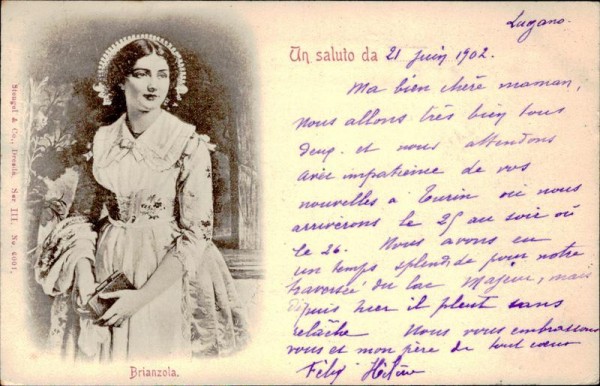 Lugano.
Un saluto da 21 juin 1902.
Ma bien chère maman,
nous allons très bien tous
deux et nous attendons
avec impatience de vos
nouvelles à Turin où nous
arriverons le 25 au soir où
le 26. Nous avons eu
un temps splendide pour notre
traversée du lac Majeur, mais
depuis hier il pleut sans
relâche Nous vous embrassons
vous et mon père de tout coeur
Félix Hélène
Stengel & Co., Dresda. Ser III. No. 6001.
Brianzola.